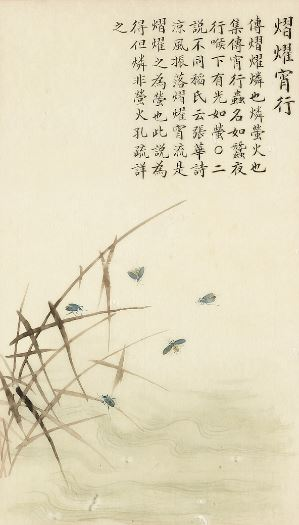 熠燿宵行
傳熠燿燐也燐螢火也
集傳宵行蟲名如蠶夜
行喉下有光如螢○二
說不同稻氏云張華詩
涼風振落熠燿宵流是
熠燿之為螢也此說為
得但燐非螢火孔疏詳
之